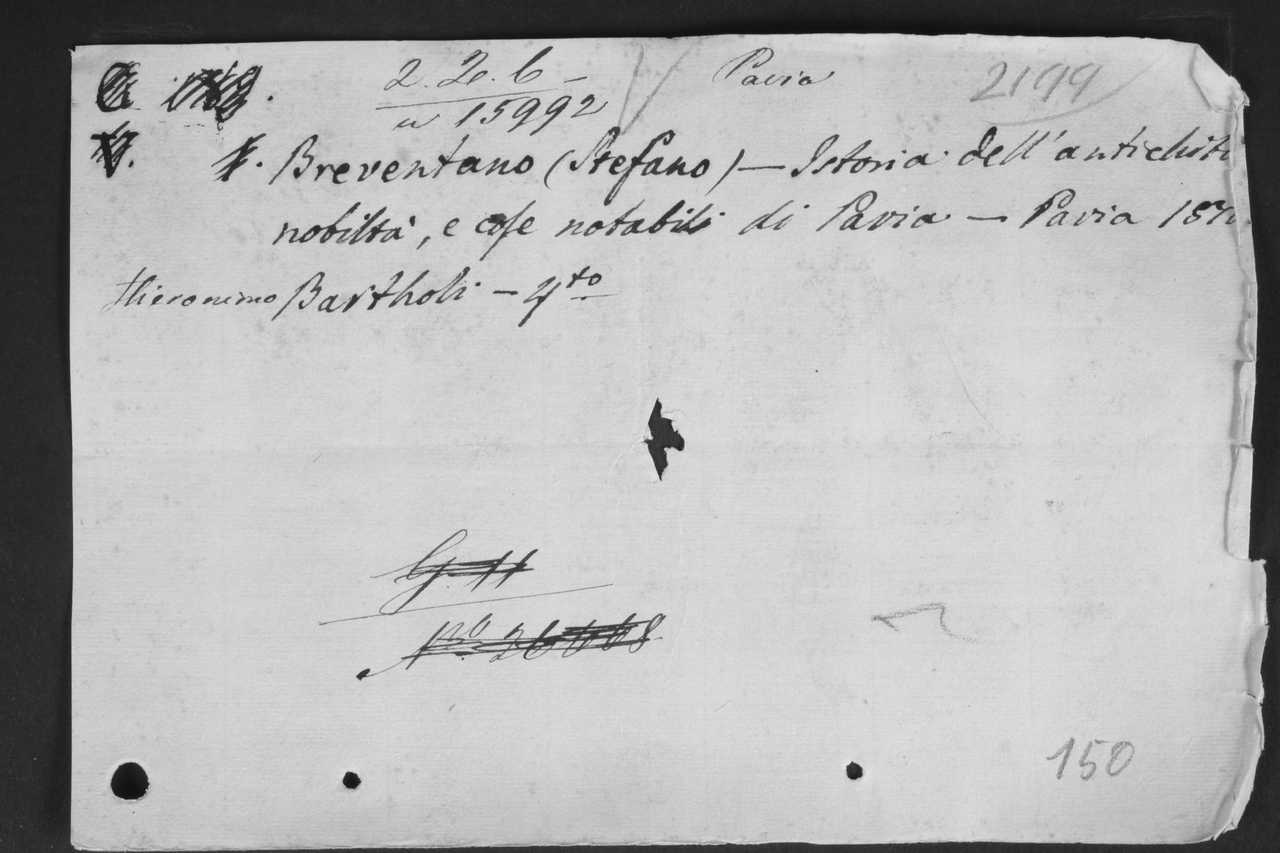 2. 20. b — Pavia 2199
15992
Breventano (Stefano) — Istoria dell'antichità
nobiltà, e cose notabili di Pavia — Pavia 1570
Hieronimo Bartholi — 4to
G. 11
No
150